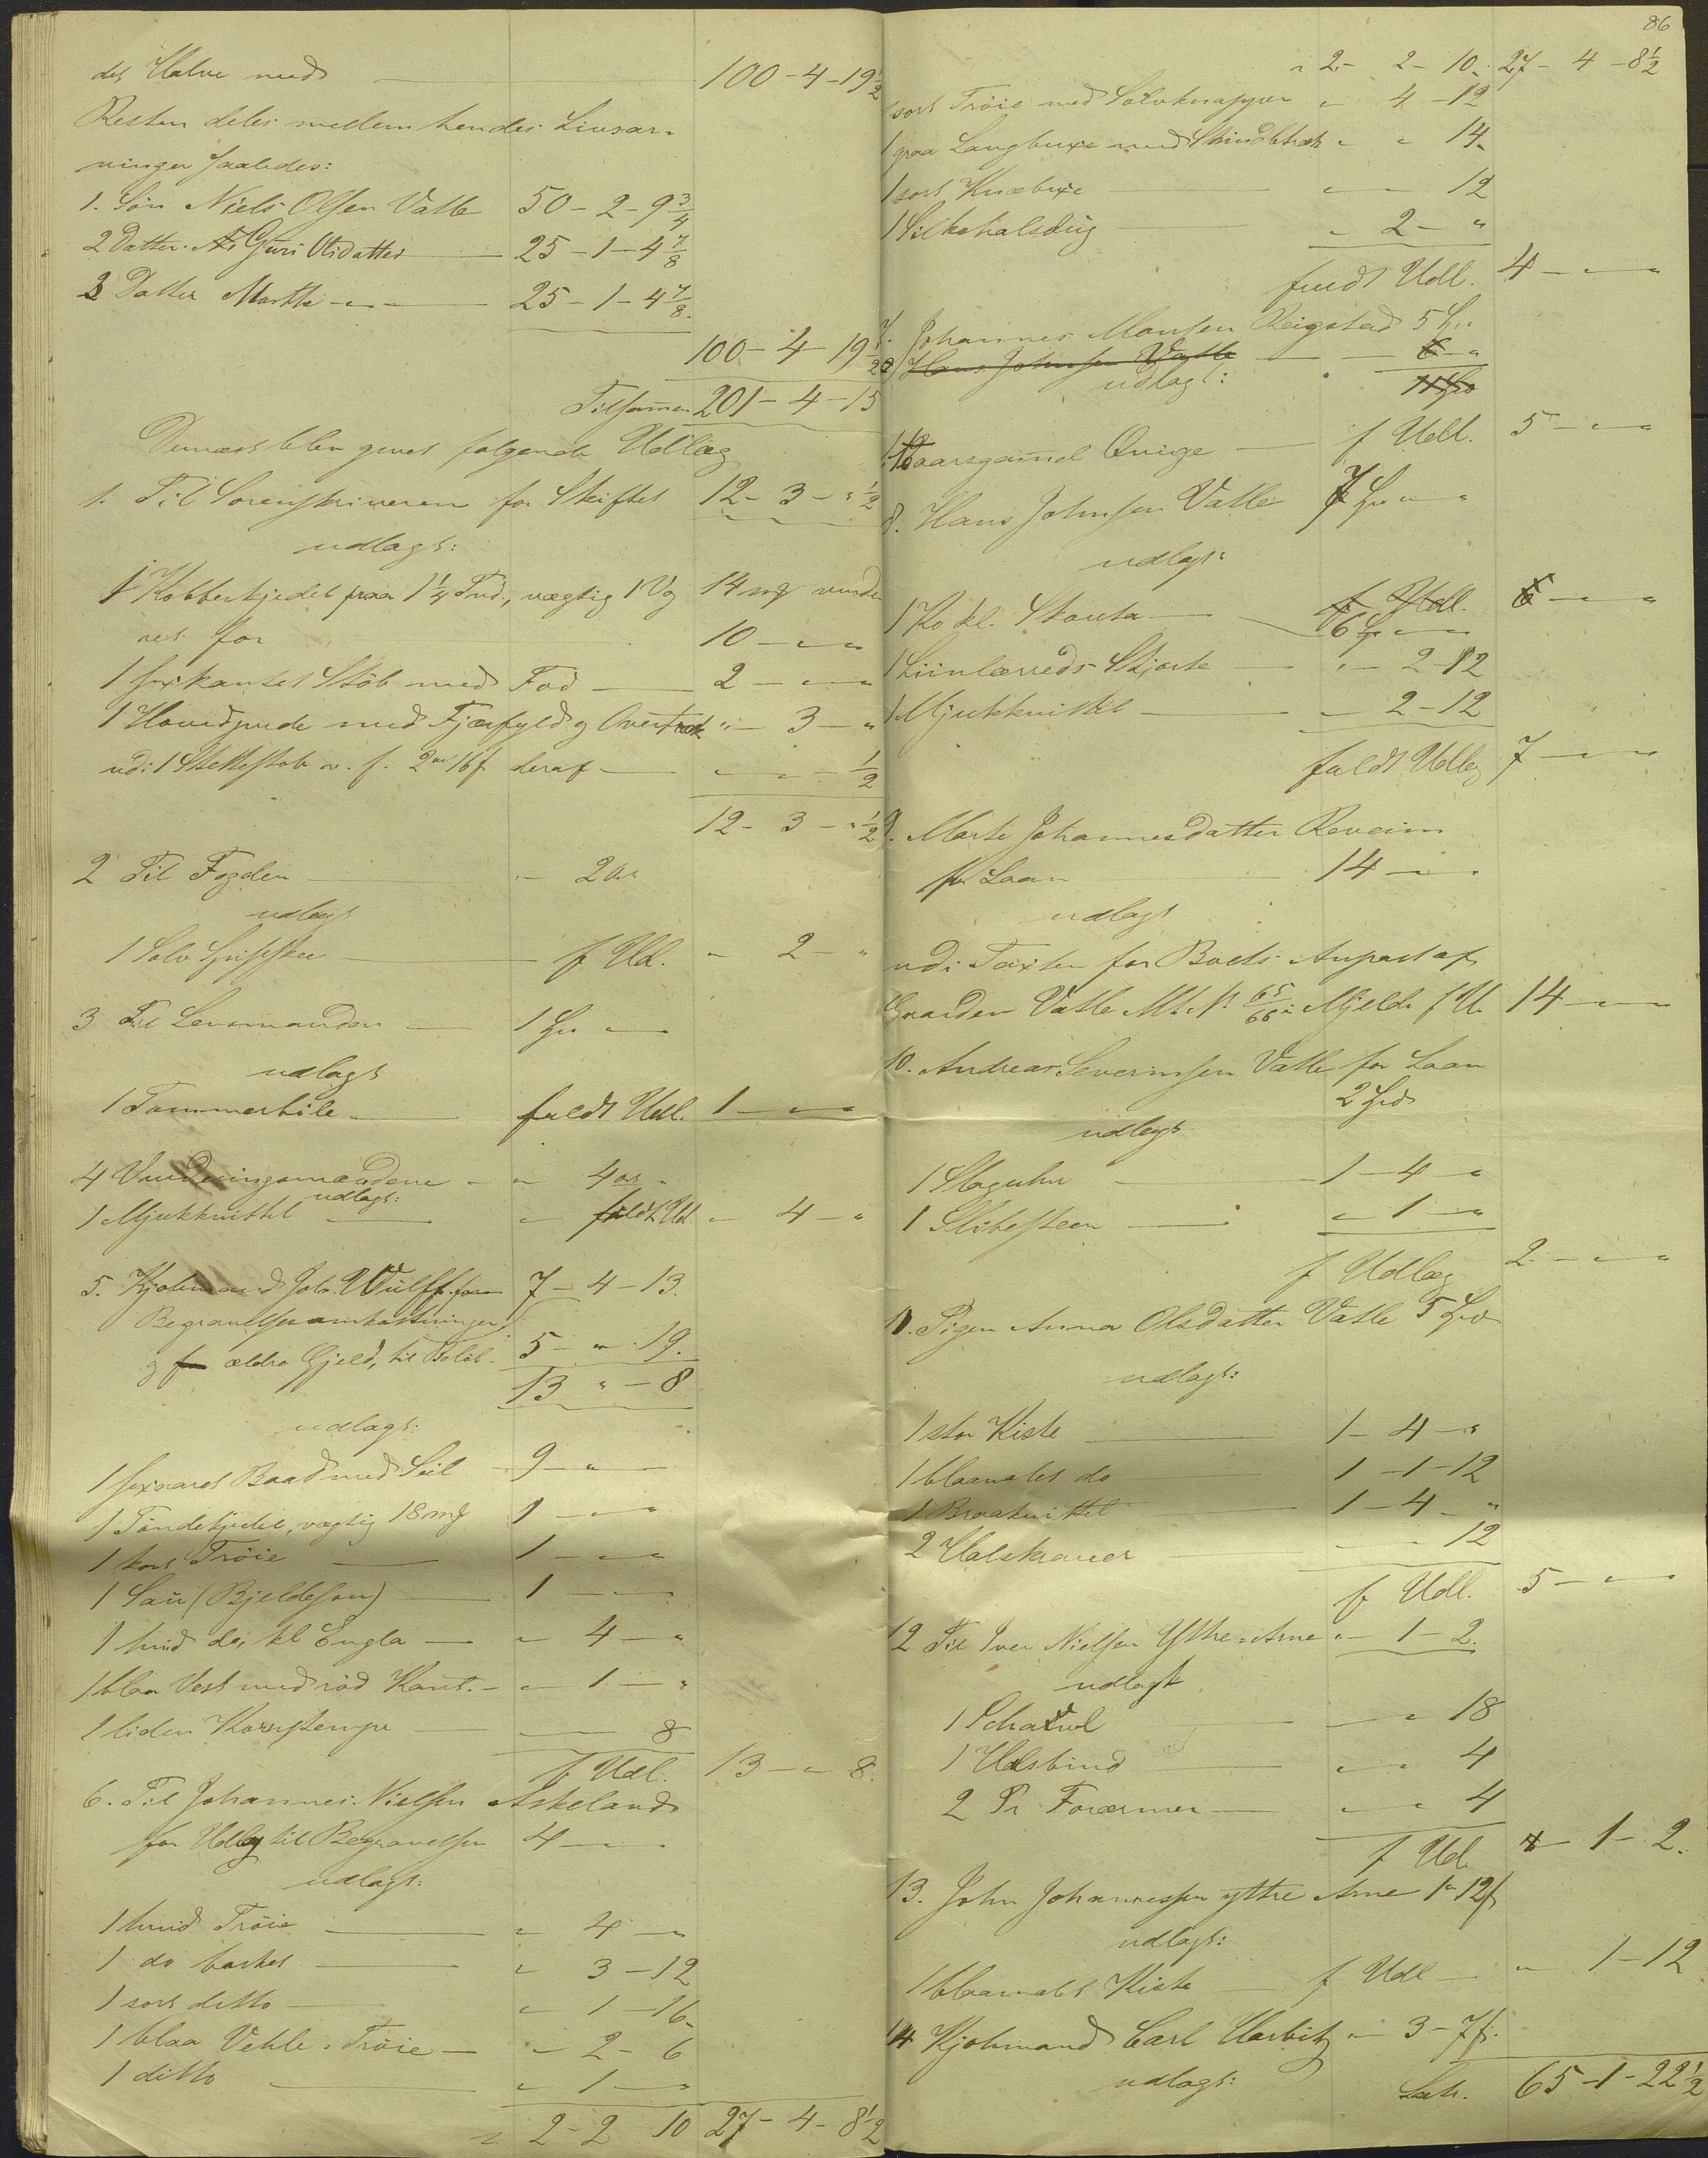 det Halve med 100-4-19½
Resten deles mellem hendes Livsar-
vinger saaledes:
1. Søn Niels Olsen Vatle 50-2-9¾
2 Datter Guri Olsdatter 25-1-4⅞
3 Datter Marthe " 25-1-4⅞.
100-4-19½
Tilsammen 201-4-15
Dernæst blev gjort følgende Udlæg
1. Til Sorenskriveren for Skiftet 12-3-"½
udlagt:
1 Kobberkjedel paa 1¼ Tnd., vægtig 1 Vg 14 mk vurde
ret for 10-"-"
1 sexkantet Stob med Fod 2-"-"
1 Hovedpude med Fjærfyld og Overtræk "-3-"
udi 1 v. f. 2 ort 16 s heraf "-"-½
12-3-"½
2 Til Fogden - 2 ort
udlagt
1 Sølv f Ud. "-2-"
3 Til Lensmanden 1 Spd "-
udlagt
1 Tømmerbile fuldt Udl. 1-"-"
4 Vurderingsmændene - " 4 ort "
udlagt:
1 Mjukkvittel " fuldt Udl. "-4-"
5. Kjøbmand Joh. Wulff for 7-4-13.
Begravelsesomkostninger
og ældre Gjeld, til Beløb 5-"-19.
13 "-8
udlagt:
1 sexaaret Baad med Seil 9-"-
1 Tøndekjedel, vægtig 18 mk 1-"-"
1 sort Trøie 1-"-"
1 Sau (Bjeldesau) 1-"-
1 hvid do, kl Engla "-4-"
1 blaa Vest med rød Kant. "-1-"
1 liden Kornstampe 8
f Udl. 13-"-8.
6. Til Johannes Nielsen Askeland
for Udlæg til Begravelsen 4-"-
udlagt:
1 hvid Trøie "-4-"
1 do barket "-3-12
1 sort ditto "-1-16
1 blaa Vehle-Trøie "-2-6
1 ditto "-1-"
2-2 10 27-4-8½
86
2-2-10 27-4-8½
1 sort Trøie med Sølvknapper "-4-12
1 graa Langbuxe med Skindbetræk "-"-14
1 sort Knæbuxe "-"-12
1 Silkehalsdug "-2-"
fuldt Udl. 4-"-"
7. Johannes Monsen Reigstad 5 Spd
8 Hans Johnsen Vatle 6-"
udlagt: 11 Spd
1 aarsgammel Qvige f Udl. 5-"-"
8. Hans Johnsen Vatle 7 Spd "-"
udlagt:
f Udl. 6-"-"
1 Ko kl. Skouta 6 Sp "-"
1 Liinlærreds Skjorte "-2-12
1 Mjukkvittel "-2-12
fuldt Udlæg 7-"-"
9. Marte Johannesdatter Reveim
for Laan 14-"-
udlagt
udi Taxten for Boets Anpart af
Gaarden Vatle M. N. 65/66 i Mjelde f U. 14-"-"
10. Andreas Severinsen Vatle for Laan
2 Spd
udlagt
1 Slaguhr 1-4-"
1 Slibesteen "-1-"
f Udlæg 2-"-"
11. Pigen Anna Olsdatter Vatle 5 Spd
udlagt:
1 stor Kiste 1-4-"
1 blaamalet do 1-1-12
1 Braatvittel 1-4-"
2 Halskraver "-"-12
f Udl. 5-"-"
12 Til Iver Nielsen Ythre-Arne "-1-2.
udlagt
1 "-"-18
1 Halsbind "-"-4
2 Pr Forærmer "-"-4
f Ud. "-1-2.
13. John Johannessen ythre Arne 1 ort 12 s
udlagt:
1 blaamalet Kiste f Udl "-1-12
14 Kjøbmand Carl Harbitz "-3-7 s.
udlagt:
Lat. 65-1-22½